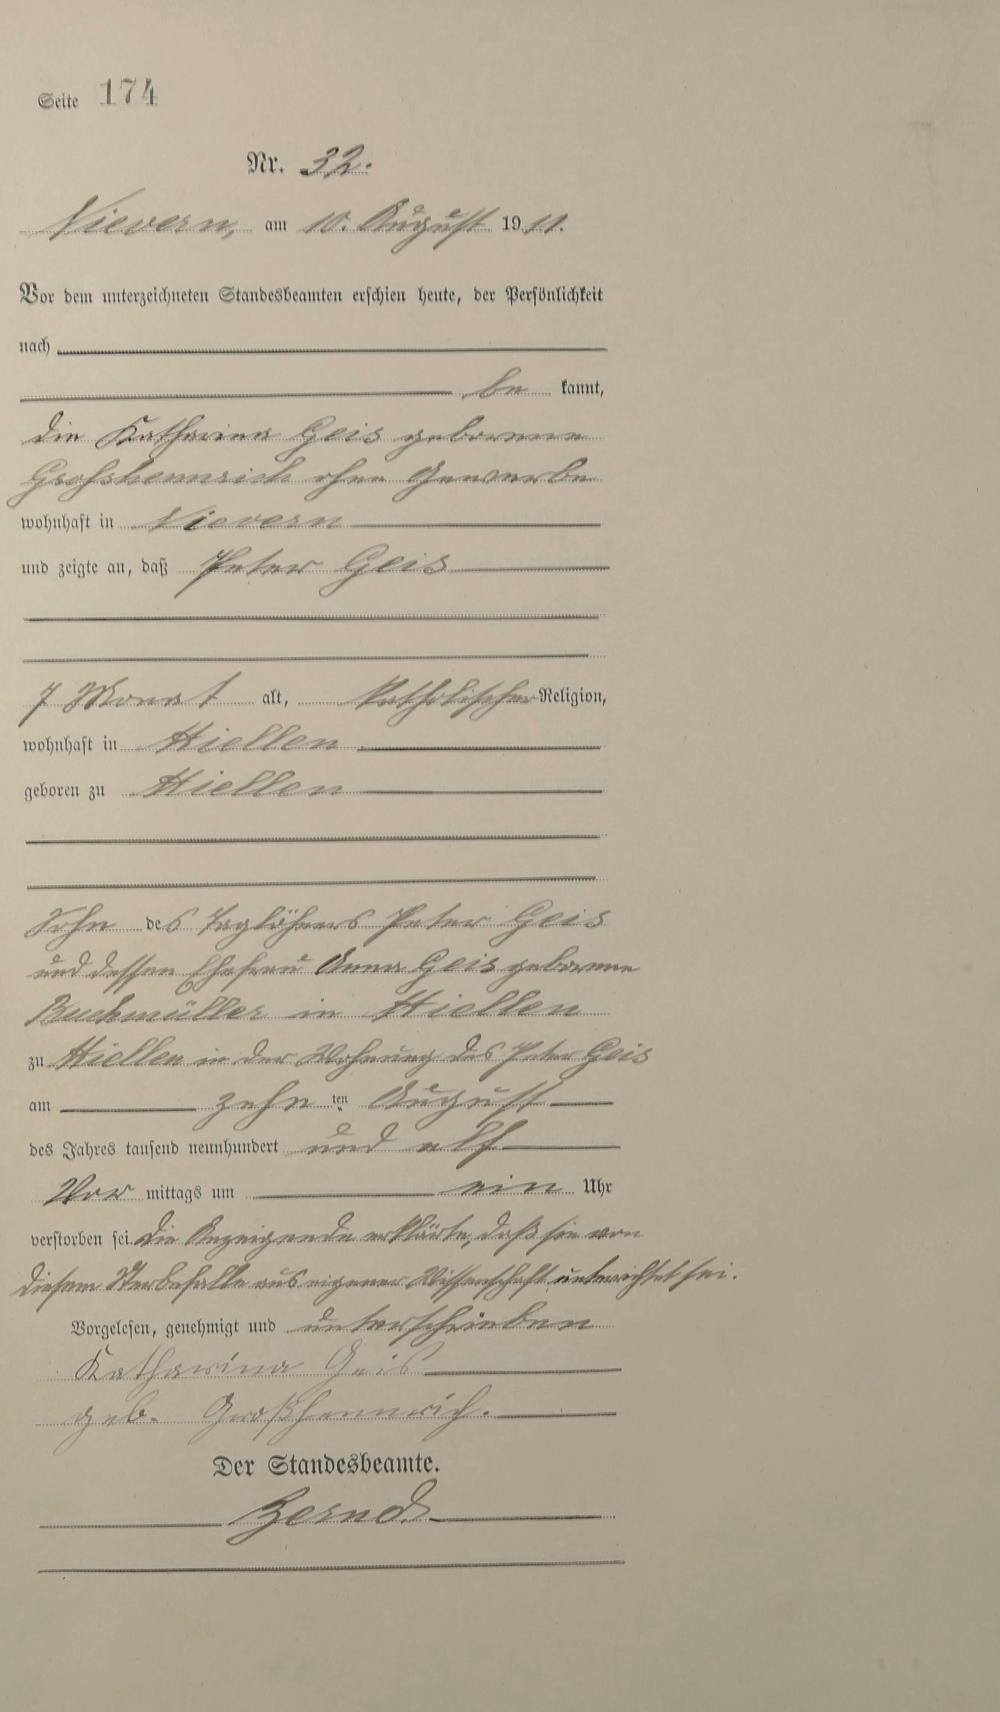 Seite 174
Nr. 32.
Nievern, am 10. August 1911.
Vor dem unterzeichneten Standesbeamten erschien heute, der Persönlichkeit
nach
be kannt,
die Katharina Geis geborenne
Grosshennrich ohne Gewerbe
wohnhaft in Nievern
und zeigte an, daß Peter Geis
7 Monat alt, katholischer Religion,
wohnhaft in Miellen
geboren zu Miellen
Sohn des Taglöhners Peter Geis
und dessen Ehefrau Anna Geis geborenne
Buchmüller in Miellen
zu Miellen in der Wohnung des Peter Geis
am zehn ten August
des Jahres tausend neunhundert und elf
Vor mittags um ein Uhr
verstorben sei. Die Anzeigende erklärte, daß sie von
diesem Sterbefalle aus eigener Wissenschaft unterrichtet sei.
Vorgelesen, genehmigt und unterschrieben
Katharina Geis
geb. Großhennrich.
Der Standesbeamte.